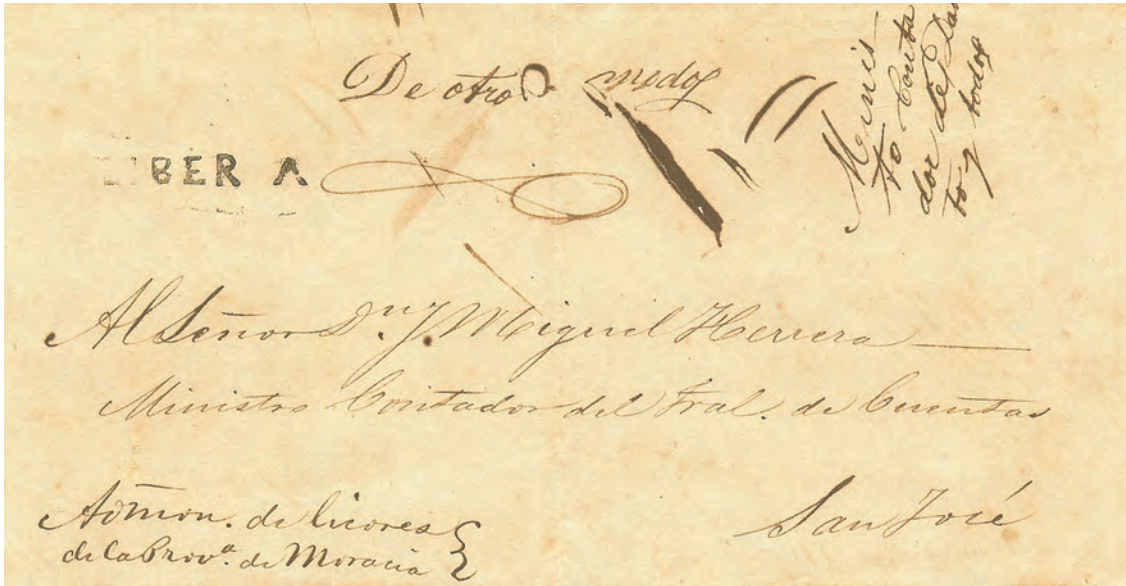 De otro modo
Minis
to Conta
dor de
to y todos
BER A
Al Señor Dn. J. Miguel Herrera
Ministro Contador del Tral. de Cuentas
San José
Admon. de licores
de la Prova. de Moracia